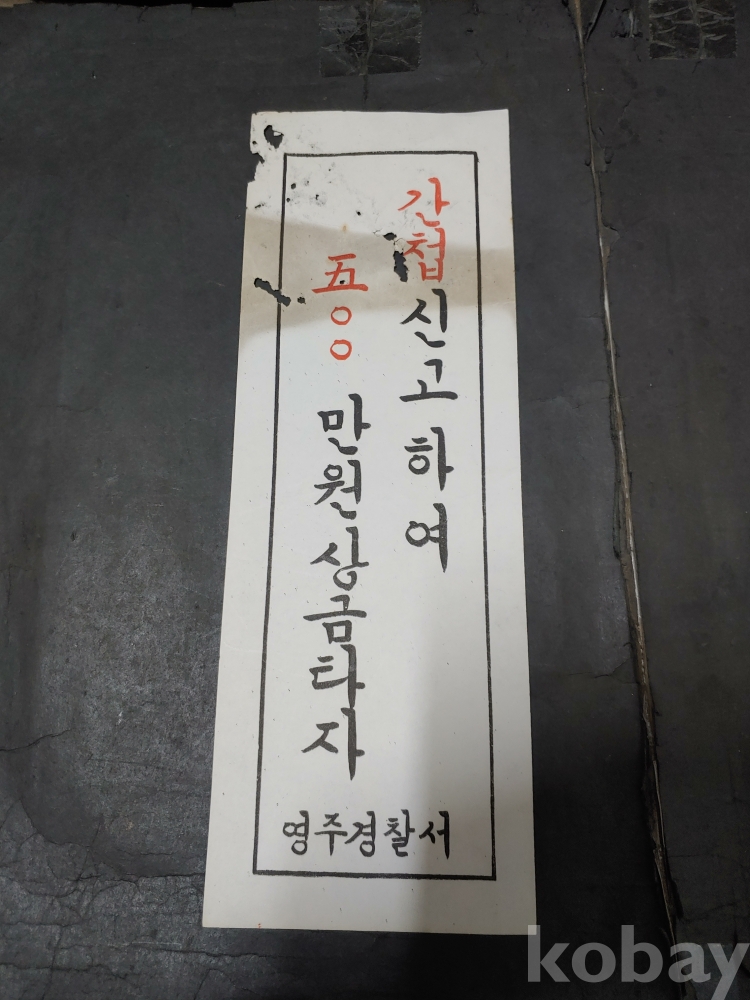 간첩신고하여
五〇〇만원상금타자
영주경찰서
kobay